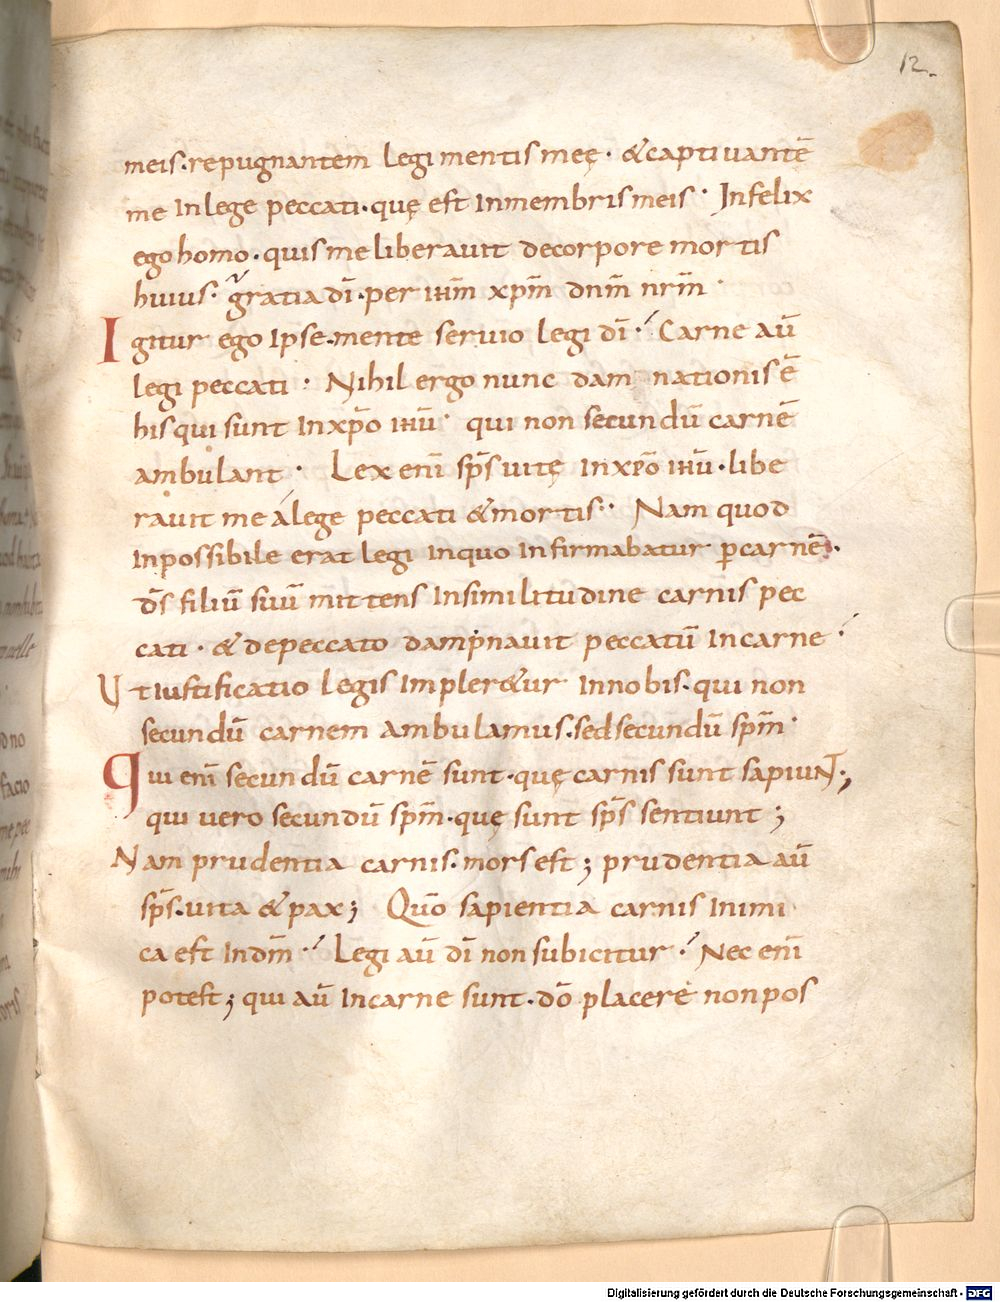 12.
meis. repugnantem legi mentis meę. &captiuantē
me Inlege peccati. quę est Inmembris meis. Infelix
ego homo. quis me liberauit decorpore mortis
huius. gratia dī. per ihm̄ xp̄m dnm̄ nrm̄.
Igitur ego Ipse. mente seruio legi dī. Carne aū
legi peccati. Nihil ergo nunc dam nationis ē
his qui sunt Inxp̄o ihū. qui non secundū carnē
ambulant. Lex enī sp̄s uitę Inxp̄o ihū. libe
rauit me álege peccati &mortis. Nam quod
Inpossibile erat legi Inquo Infirmabatur ꝑcarnē.
d̄s filiū suū mittens Insimilitudine carnis pec
cati. & depeccato dampnauit peccatū Incarne
Vt Iustificatio legis Impler&ur Innobis. qui non
secundū carnem ambulamus. sed secundū sp̄m.
qui enī secundū carnē sunt. quę carnis sunt sapiuNT;
qui uero secundū sp̄m. quę sunt sp̄s sentiunt;
Nam prudentia carnis. mors est; prudentia aū
sp̄s. uita & pax; Quō sapientia carnis Inimi
ca est Indm̄. Legi aū dī non subicitur. Nec enī
potest; qui aū Incarne sunt. dō placere nonpos
Digitalisierung gefördert durch die Deutsche Forschungsgemeinschaft - DFG